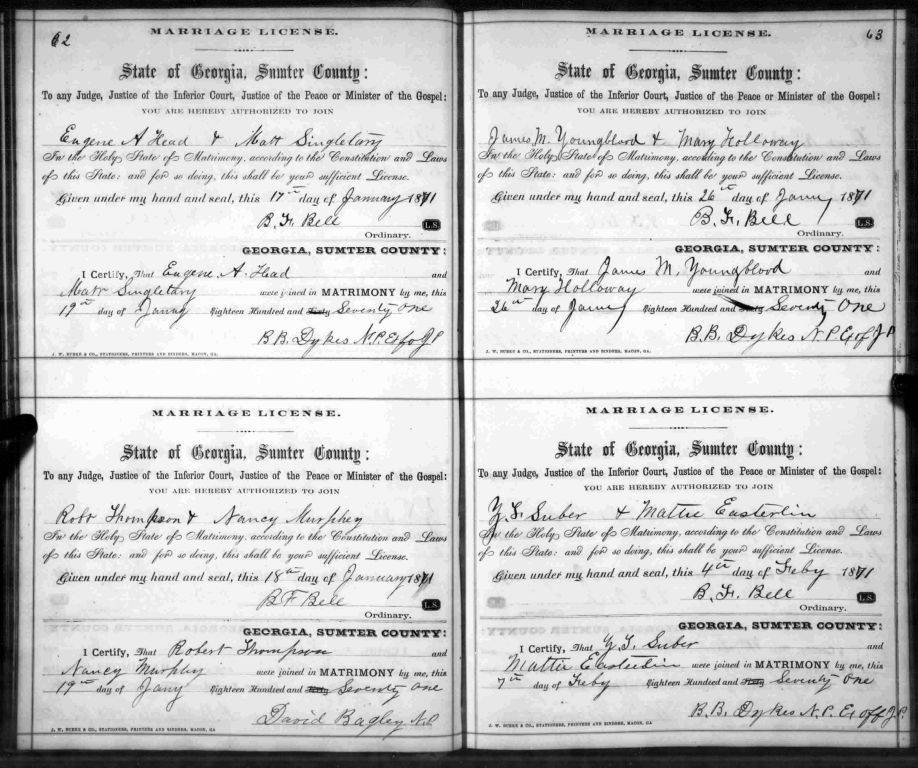 62
MARRIAGE LICENSE.
State of Georgia, Sumter County:
To any Judge, Justice of the Inferior Court, Justice of the Peace or Minister of the Gospel:
YOU ARE HEREBY AUTHORIZED TO JOIN
Eugene A Head & Matt Singletary
In the Holy State of Matrimony, according to the Constitution and Laws
of this State: and for so doing, this shall be your sufficient License.
Given under my hand and seal, this 17th day of January 1871
B. F. Bell L.S.
Ordinary.
GEORGIA, SUMTER COUNTY:
I Certify, That Eugene A. Head and
Matt Singletary were joined in MATRIMONY by me, this
19th day of Jany Eighteen Hundred and Sixty Seventy One
B B. Dykes N.P. Exfo J P
J. W. BURKE & CO., STATIONERS, PRINTERS AND BINDERS, MACON, GA.
MARRIAGE LICENSE.
State of Georgia, Sumter County:
To any Judge, Justice of the Inferior Court, Justice of the Peace or Minister of the Gospel:
YOU ARE HEREBY AUTHORIZED TO JOIN
Robt Thompson & Nancy Murphey
In the Holy State of Matrimony, according to the Constitution and Laws
of this State: and for so doing, this shall be your sufficient License.
Given under my hand and seal, this 18th day of January 1871
B F Bell L.S.
Ordinary.
GEORGIA, SUMTER COUNTY:
I Certify, That Robert Thompson and
Nancy Murphy were joined in MATRIMONY by me, this
19th day of Jany Eighteen Hundred and Sixty Seventy One
David Bagley N.P.
J. W. BURKE & CO., STATIONERS, PRINTERS AND BINDERS, MACON, GA
63
MARRIAGE LICENSE.
State of Georgia, Sumter County:
To any Judge, Justice of the Inferior Court, Justice of the Peace or Minister of the Gospel:
YOU ARE HEREBY AUTHORIZED TO JOIN
James M. Youngblood & Mary Holloway
In the Holy State of Matrimony, according to the Constitution and Laws
of this State: and for so doing, this shall be your sufficient License.
Given under my hand and seal, this 26th day of Jany 1871
B. F. Bell L.S.
Ordinary.
GEORGIA, SUMTER COUNTY:
I Certify, That James M. Youngblood and
Mary Holloway were joined in MATRIMONY by me, this
26th day of Jany Eighteen Hundred and Sixty Seventy One
B.B. Dykes N. P. Ex of J P
J. W. BURKE & CO., STATIONERS, PRINTERS AND BINDERS, MACON, GA.
MARRIAGE LICENSE.
State of Georgia, Sumter County:
To any Judge, Justice of the Inferior Court, Justice of the Peace or Minister of the Gospel:
YOU ARE HEREBY AUTHORIZED TO JOIN
Y. F. Suber & Mattie Easterlin
In the Holy State of Matrimony, according to the Constitution and Laws
of this State: and for so doing, this shall be your sufficient License.
Given under my hand and seal, this 4th day of Feby 1871
B. F. Bell L.S.
Ordinary.
GEORGIA, SUMTER COUNTY:
I Certify, That Y. F. Suber and
Mattie Easterlin were joined in MATRIMONY by me, this
7th day of Feby Eighteen Hundred and Sixty Seventy One
B.B. Dykes N. P. Ex off J.P.
J. W. BURKE & CO., STATIONERS, PRINTERS AND BINDERS, MACON, GA.